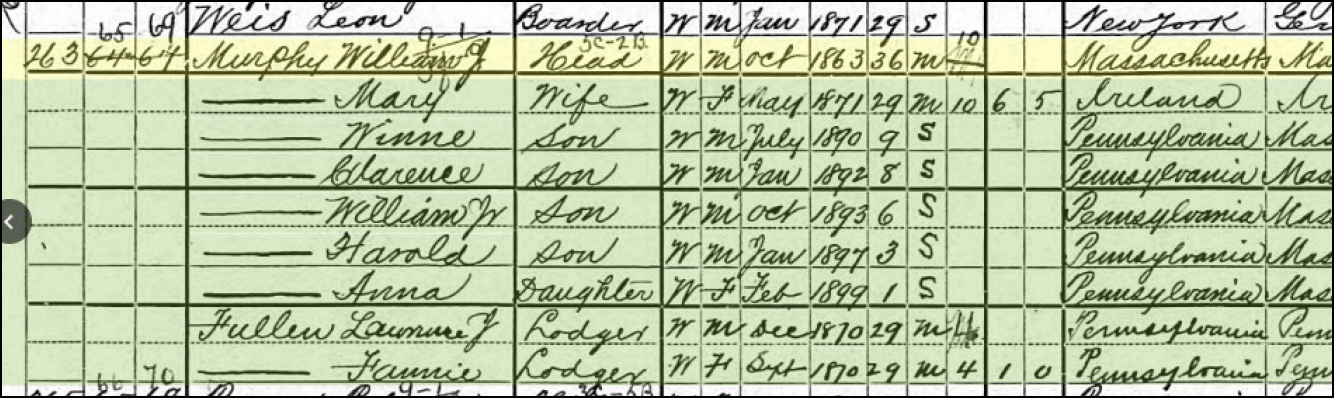 65 69 Weis Leon Boarder W M Jan 1871 29 S New York Ger
263 64 64 Murphy William J Head W M Oct 1863 36 M 10 Massachusetts Ma
—— Mary Wife W F May 1871 29 M 10 6 5 Ireland Ir
—— Winne Son W M July 1890 9 S Pennsylvania Mas
—— Clarence Son W M Jan 1892 8 S Pennsylvania Mass
—— William J Son W M Oct 1893 6 S Pennsylvania Mas
—— Harold Son W M Jan 1897 3 S Pennsylvania Mas
—— Anna Daughter W F Feb 1899 1 S Pennsylvania Mas
Fullen Lawrence J Lodger W M Dec 1870 29 M Pennsylvania Penn
66 70 —— Fannie Lodger W F Sept 1870 29 M 4 1 0 Pennsylvania Penn